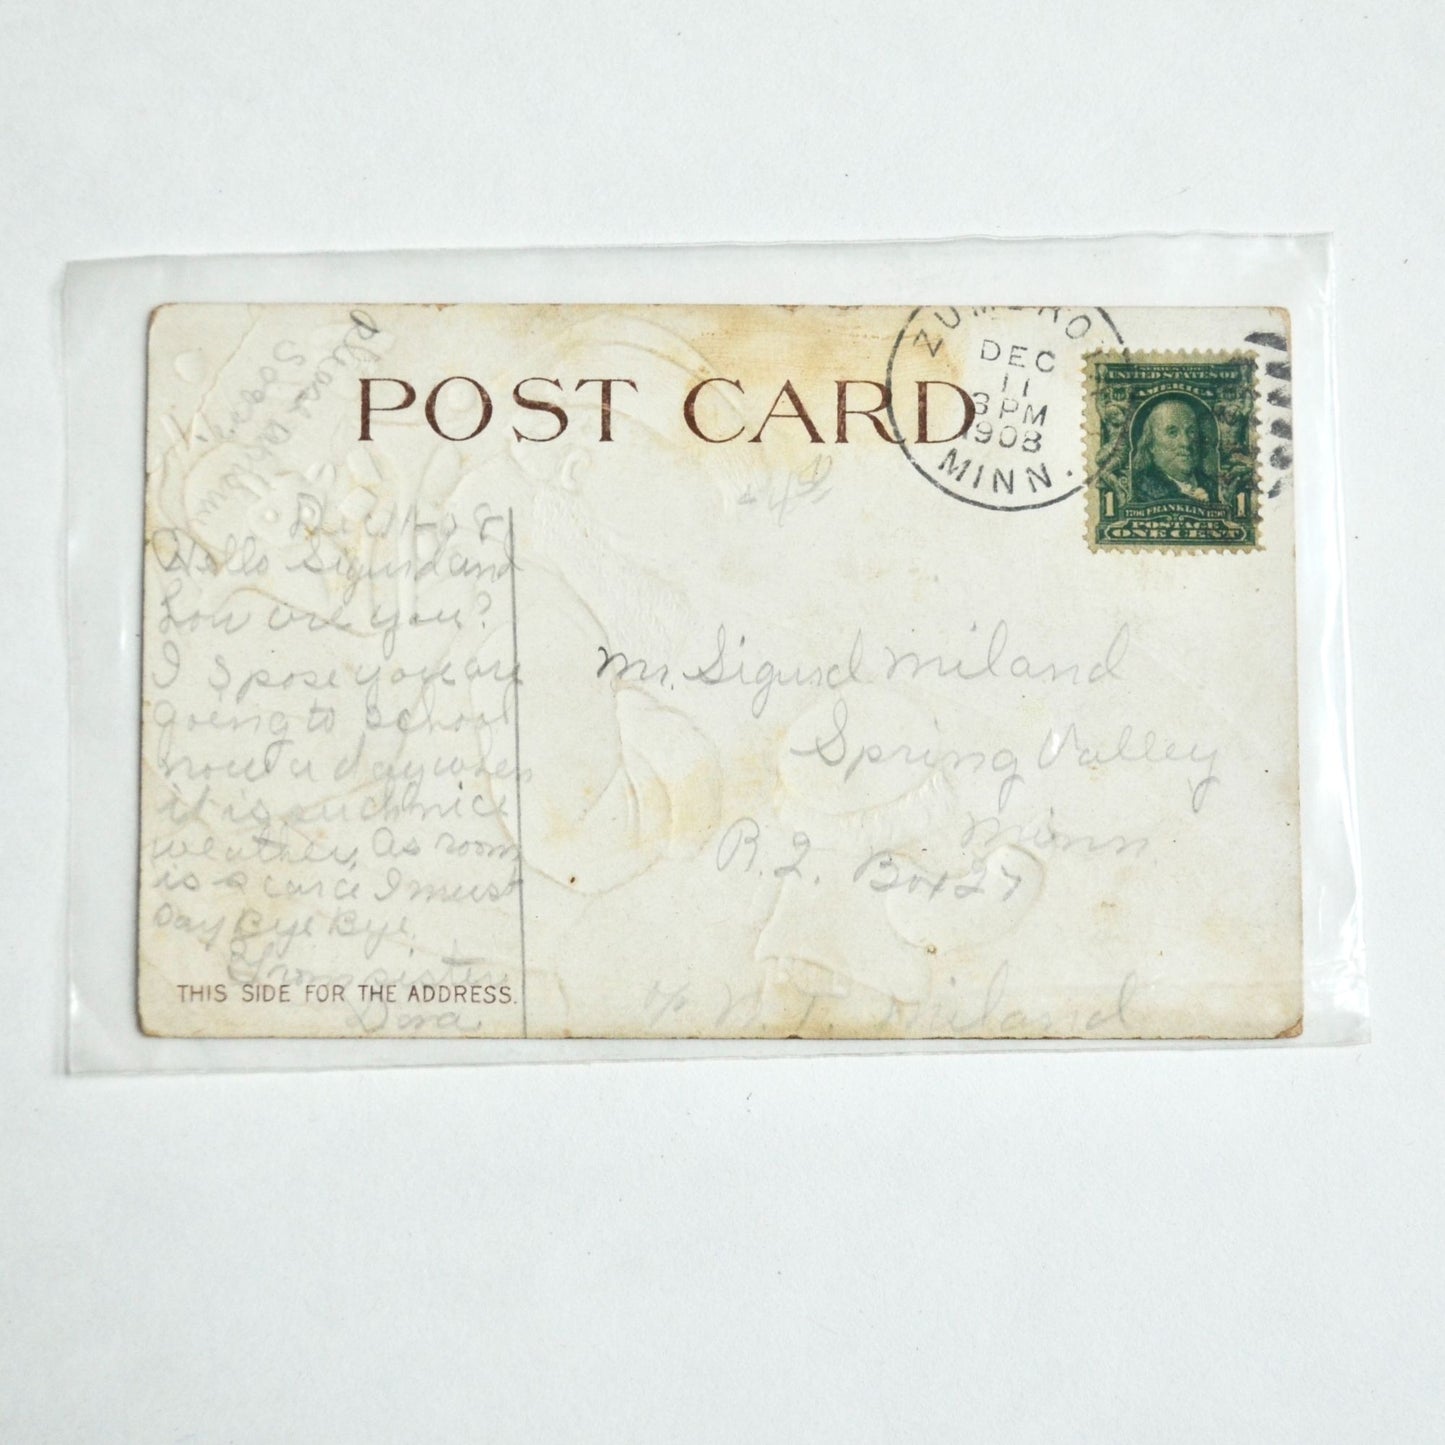 POST CARD
ZUMBRO
DEC
11
3 PM
1908
MINN.
SERIES 1902
UNITED STATES OF
AMERICA
1 1
1706 FRANKLIN 1790
POSTAGE
ONE CENT
please
Soon
Dec 11-08
Hello Sigurd and
how are you?
I spose you are
going to school
now a day when
it is such nice
weather. As room
is scarce I must
Say Bye Bye.
From sister
Dora.
THIS SIDE FOR THE ADDRESS.
Mr. Sigurd Miland
Spring Valley
Minn.
R. 2. Box 27
c/o N. T. Miland